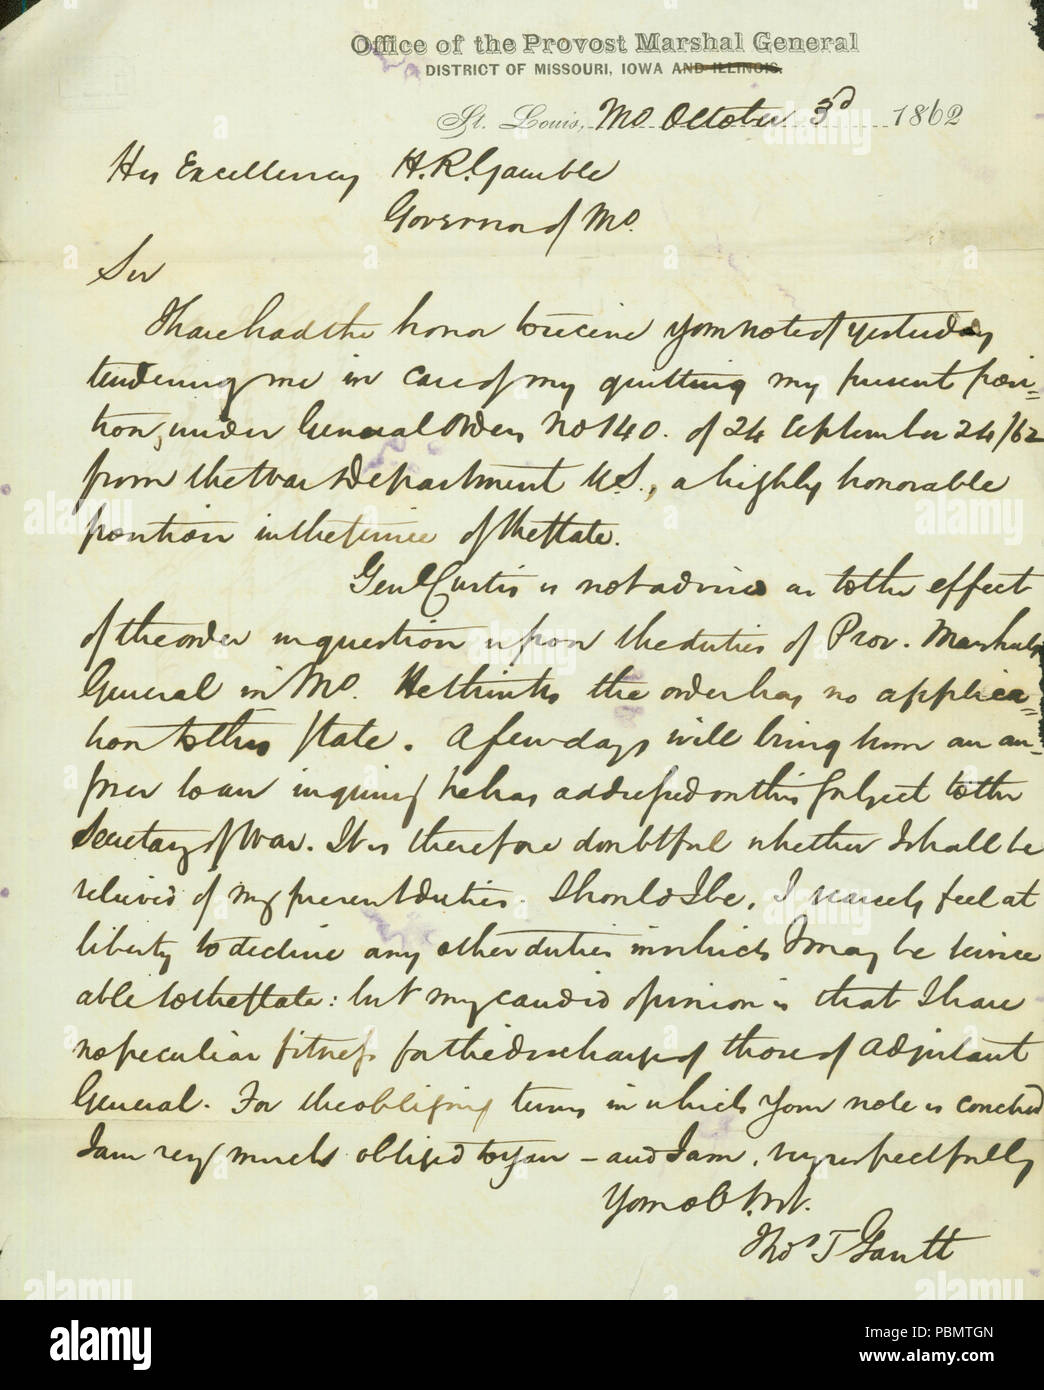 Office of the Provost Marshal General
DISTRICT OF MISSOURI, IOWA AND ILLINOIS.
St. Louis, Mo October 3d 1862
His Excellency H. R. Gamble
Governor of Mo.
Sir
I have had the honor to receive your note of yesterday
tendering me in case of my quitting my present posi=
tion, under General Orders No 140. of 24 September 24/62
from the War Department U.S., a highly honorable
position in the service of the State.
Genl Curtis is not advised as to the effect
of the order in question upon the duties of Prov. Marshal
General in Mo. He thinks the order has no applica=
tion to this State. A few days will bring him an an=
swer to an inquiry he has addressed on this subject to the
Secretary of War. It is therefore doubtful whether I shall be
relieved of my present duties. Should I be, I scarcely feel at
liberty to decline any other duties in which I may be service
able to the State: but my candid opinion is that I have
no peculiar fitness for the discharge of those of Adjutant
General. For the obliging terms in which your note is couched
I am very much obliged to you – and I am, very respectfully
Your obt. svt.
Thos T Gantt
alamy
Image ID: PBMTGN
www.alamy.com